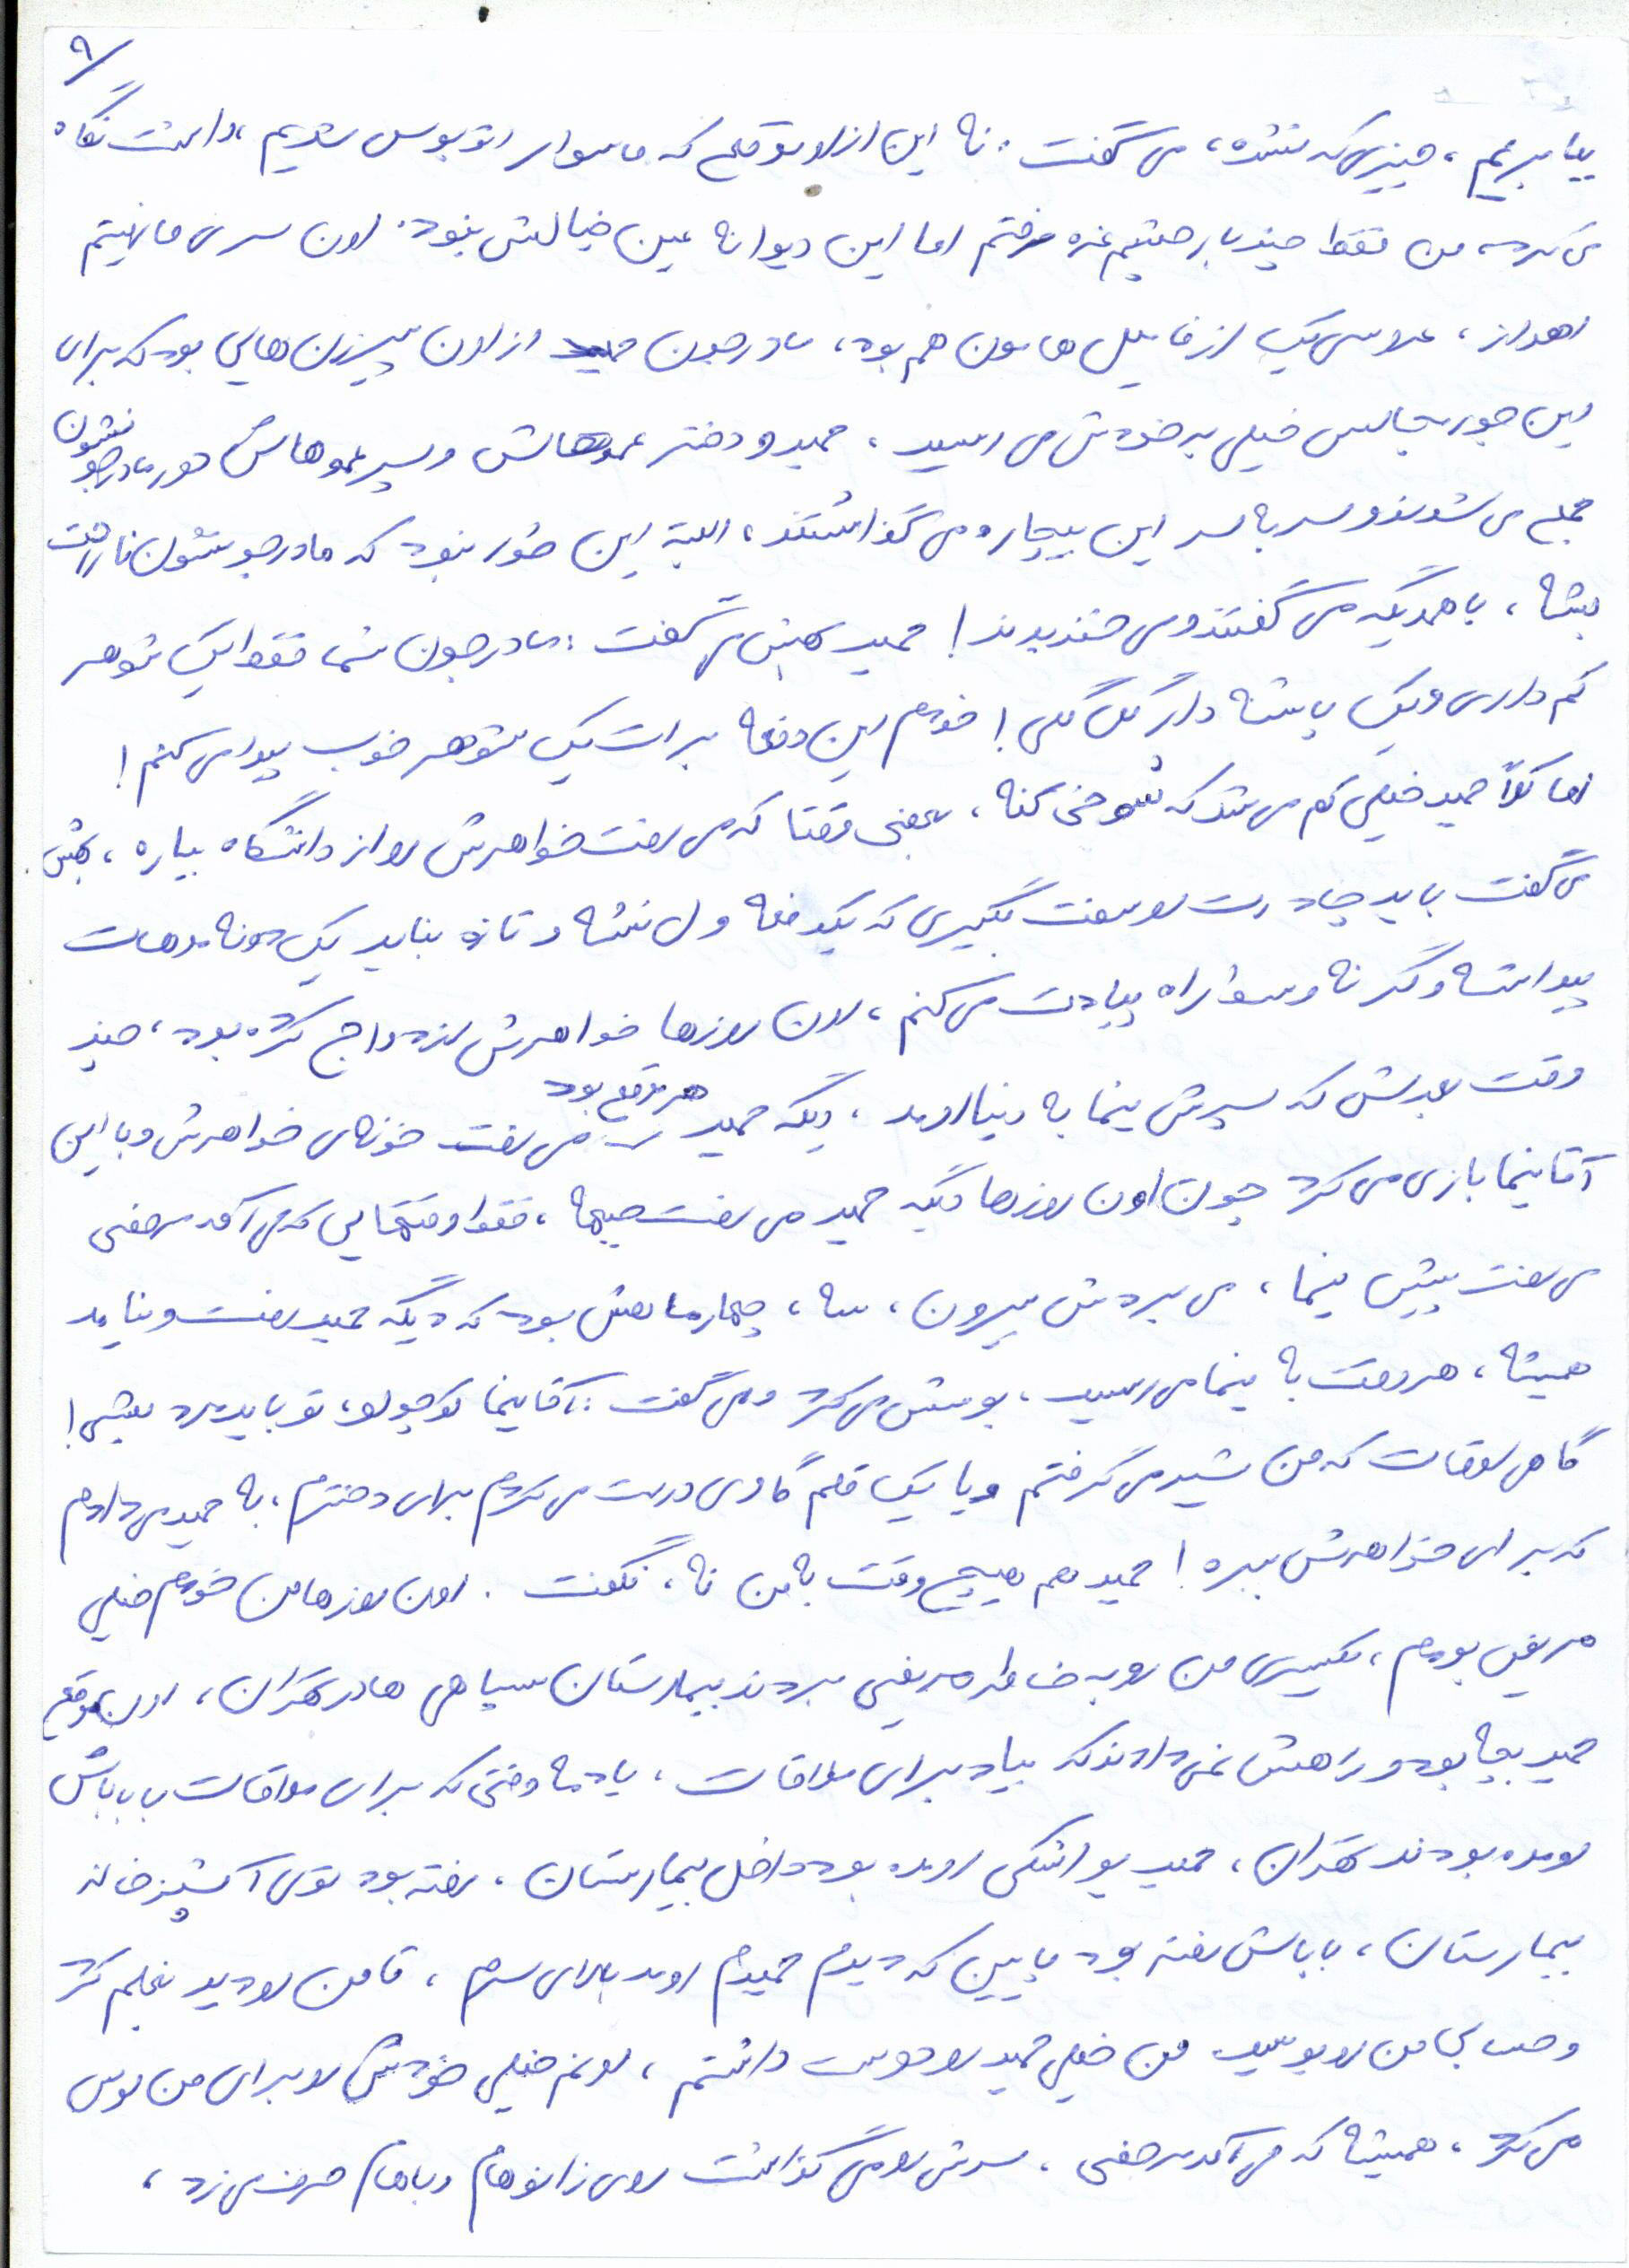 ۹/
بیا بریم، چیزی که نشده، می گفت: نه این از اون موقعی که ما سوار اتوبوس شدیم، داشت نگاه
می کرد، من فقط چند بار چشم غره رفتم اما این دیوانه عین خیالش نبود. اون سری ما رفتیم
اهواز، عروسی یکی از فامیل هامون هم بود، مادرجون از اون پیرزن هایی بود که برای
این جور مجالس خیلی به خودش می رسید، حمید و دختر عموهاش و پسر عموهاش دور مادرجونشون
جمع می شدند و سر به سر این بیچاره می گذاشتند، البته این طور نبود که مادرجونشون ناراحت
بشه، با همدیگه می گفتند و می خندیدند! حمید بهش می گفت: مادرجون شما فقط یک شوهر
کم داری و یک پاشنه دار گل گلی! خودم این دفعه برات یک شوهر خوب پیدا می کنم!
اما کلاً حمید خیلی کم می شد که شوخی کنه، بعضی وقتا که می رفت خواهرش رو از دانشگاه بیاره، بهش
می گفت باید چادرت رو سفت بگیری که یکدفعه ول نشه و تازه نباید یک دونه موهات
پیدا شه وگرنه وسط راه پیادت می کنم، اون روزها خواهرش ازدواج کرده بود، چند
وقت بعدش که پسرش نیما به دنیا اومد، دیگه حمید هر موقع بود می رفت خونه ی خواهرش و با این
آقا نیما بازی می کرد چون اون روزها دیگه حمید می رفت جبهه، فقط وقتهایی که می آمد مرخصی
می رفت پیش نیما، می بردش بیرون، سه، چهار ماهش بود که دیگه حمید رفت و نیامد
همیشه، هر وقت به نیما می رسید، بوسش می کرد و می گفت: آقا نیما کوچولو، تو باید مرد بشی!
گاهی اوقات که من شیر می گرفتم و یا یک قلم گاوی درست می کردم برای دخترم، به حمید می دادم
که برای خواهرش ببره! حمید هم هیچ وقت به من نه، نگفت. اون روزها من خودم خیلی
مریض بودم، یکسری من رو به خاطر مریضی بردند بیمارستان سپاهی ها در تهران، اون موقع
حمید بچه بود و راهش نمی دادند که بیاد برای ملاقات، یادمه وقتی که برای ملاقات با باباش
اومده بودند تهران، حمید یواشکی اومده بود داخل بیمارستان، رفته بود توی آشپزخانه
بیمارستان، باباش رفته بود پایین که دیدم حمیدم اومد بالای سرم، تا من رو دید بغلم کرد
و حسابی من رو بوسید من خیلی حمید رو دوست داشتم، اونم خیلی خودش رو برای من لوس
می کرد، همیشه که می آمد مرخصی، سرش رو می گذاشت روی زانوهام و باهام حرف می زد،